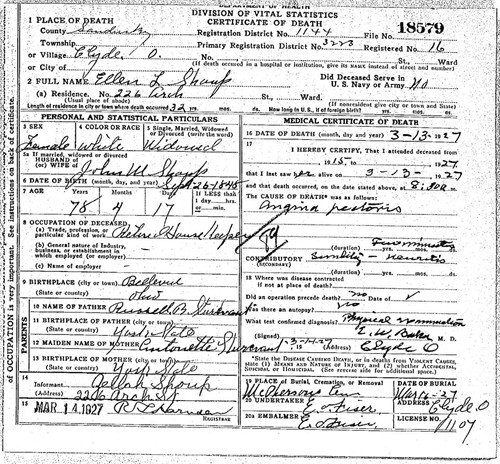 DEPARTMENT OF HEALTH
DIVISION OF VITAL STATISTICS
CERTIFICATE OF DEATH
1 PLACE OF DEATH
County Sandusky Registration District No. 1144 File No. 18579
Township Primary Registration District No. 3223 Registered No. 16
or Village Clyde, O. No. St., Ward
(If death occurred in a hospital or institution, give its name instead of street and number)
2 FULL NAME Ellen L Shoup Did Deceased Serve in U. S. Navy or Army. No
(a) Residence. No. 226 Arch St., Ward.
(Usual place of abode) (If nonresident give city or town and State)
Length of residence in city or town where death occurred 32 yrs. mos. ds. How long in U. S., if of foreign birth? yrs. mos. ds.
PERSONAL AND STATISTICAL PARTICULARS
3 SEX 4 COLOR OR RACE 5 Single, Married, Widowed or Divorced (write the word)
Female White Widowed
5a If married, widowed or divorced
HUSBAND of
(or) WIFE of John M Shoup
6 DATE OF BIRTH (month, day, and year) Sept 26-1848
7 AGE Years Months Days If LESS than 1 day, hrs. or min.
78 4 17
8 OCCUPATION OF DECEASED
(a) Trade, profession, or particular kind of work Retired House Keeper
(b) General nature of industry, business, or establishment in which employed (or employer)
(c) Name of employer
9 BIRTHPLACE (city or town) Bellevue
(State or country) Ohio
10 NAME OF FATHER Russell B.
11 BIRTHPLACE OF FATHER (city or town)
(State or country) York State
12 MAIDEN NAME OF MOTHER
13 BIRTHPLACE OF MOTHER (city or town)
(State or country) York State
14 Informant Shoup
(Address) 226 Arch St
15 MAR 14 1927 REGISTRAR
MEDICAL CERTIFICATE OF DEATH
16 DATE OF DEATH (month, day and year) 3-13-1927
17 I HEREBY CERTIFY, That I attended deceased from 1915, to 1927,
that I last saw her alive on 3-13-1927
and that death occurred, on the date stated above, at 8:30 a m.
The CAUSE OF DEATH* was as follows:
Angina pectoris
84
(duration) yrs. mos. ds.
CONTRIBUTORY Senility -
(SECONDARY)
(duration) yrs. mos. ds.
18 Where was disease contracted
if not at place of death?
Did an operation precede death? no Date of
Was there an autopsy? no
What test confirmed diagnosis? Physical examination
(Signed) M. D.
3-14-, 19 (Address) Clyde O
*State the DISEASE CAUSING DEATH, or in deaths from VIOLENT CAUSES, state (1) MEANS AND NATURE OF INJURY, and (2) whether ACCIDENTAL, SUICIDAL, or HOMICIDAL. (See reverse side for additional space.)
19 PLACE OF BURIAL, Cremation, or Removal DATE OF BURIAL
McPherson Cem Mar 16-27
20 UNDERTAKER ADDRESS Clyde O
20a EMBALMER LICENSE NO. 1107
of OCCUPATION is very important. See instructions on back of certificate.
PARENTS